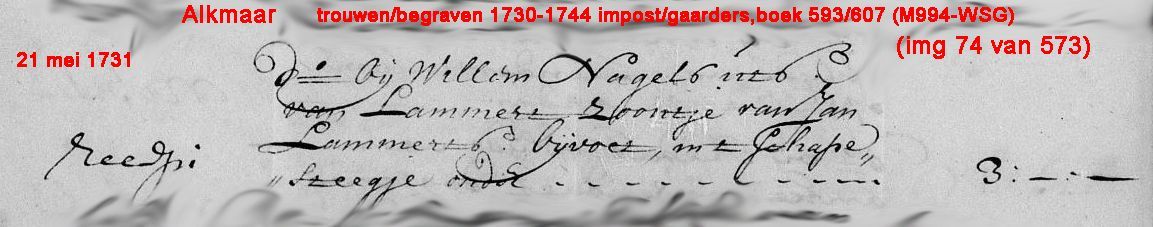 Alkmaar trouwen/begraven 1730-1744 impost/gaarders,boek 593/607 (M994-WSG)
(img 74 van 573)
21 mei 1731
do. bij Willem Nagels
van Lammert zoontje van Jan
Lammerts bijvoet, int Schape„
„steegje 3:—.—